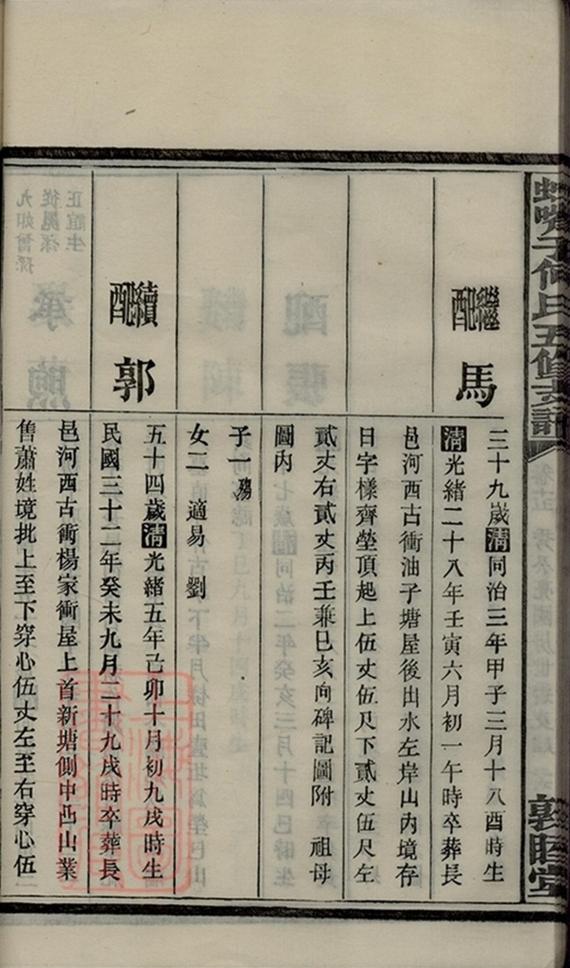 何氏五修支記
繼配 馬
三十九歲清同治三年甲子三月十八酉時生
清光緒二十八年壬寅六月初一午時卒葬長
邑河西古衝油子塘屋後出水左岸山內境存
日字樣齊塋頂起上伍丈伍尺下貳丈伍尺左
貳丈右貳丈丙壬兼巳亥向碑記圖附 祖母
圖內
子一 殤
女二 適易 劉
續配 郭
五十四歲清光緒五年己卯十月初九戌時生
民國三十二年癸未九月二十九戌時卒葬長
邑河西古衝楊家衝屋上首新塘側中凸山業
售蕭姓境批上至下穿心伍丈左至右穿心伍